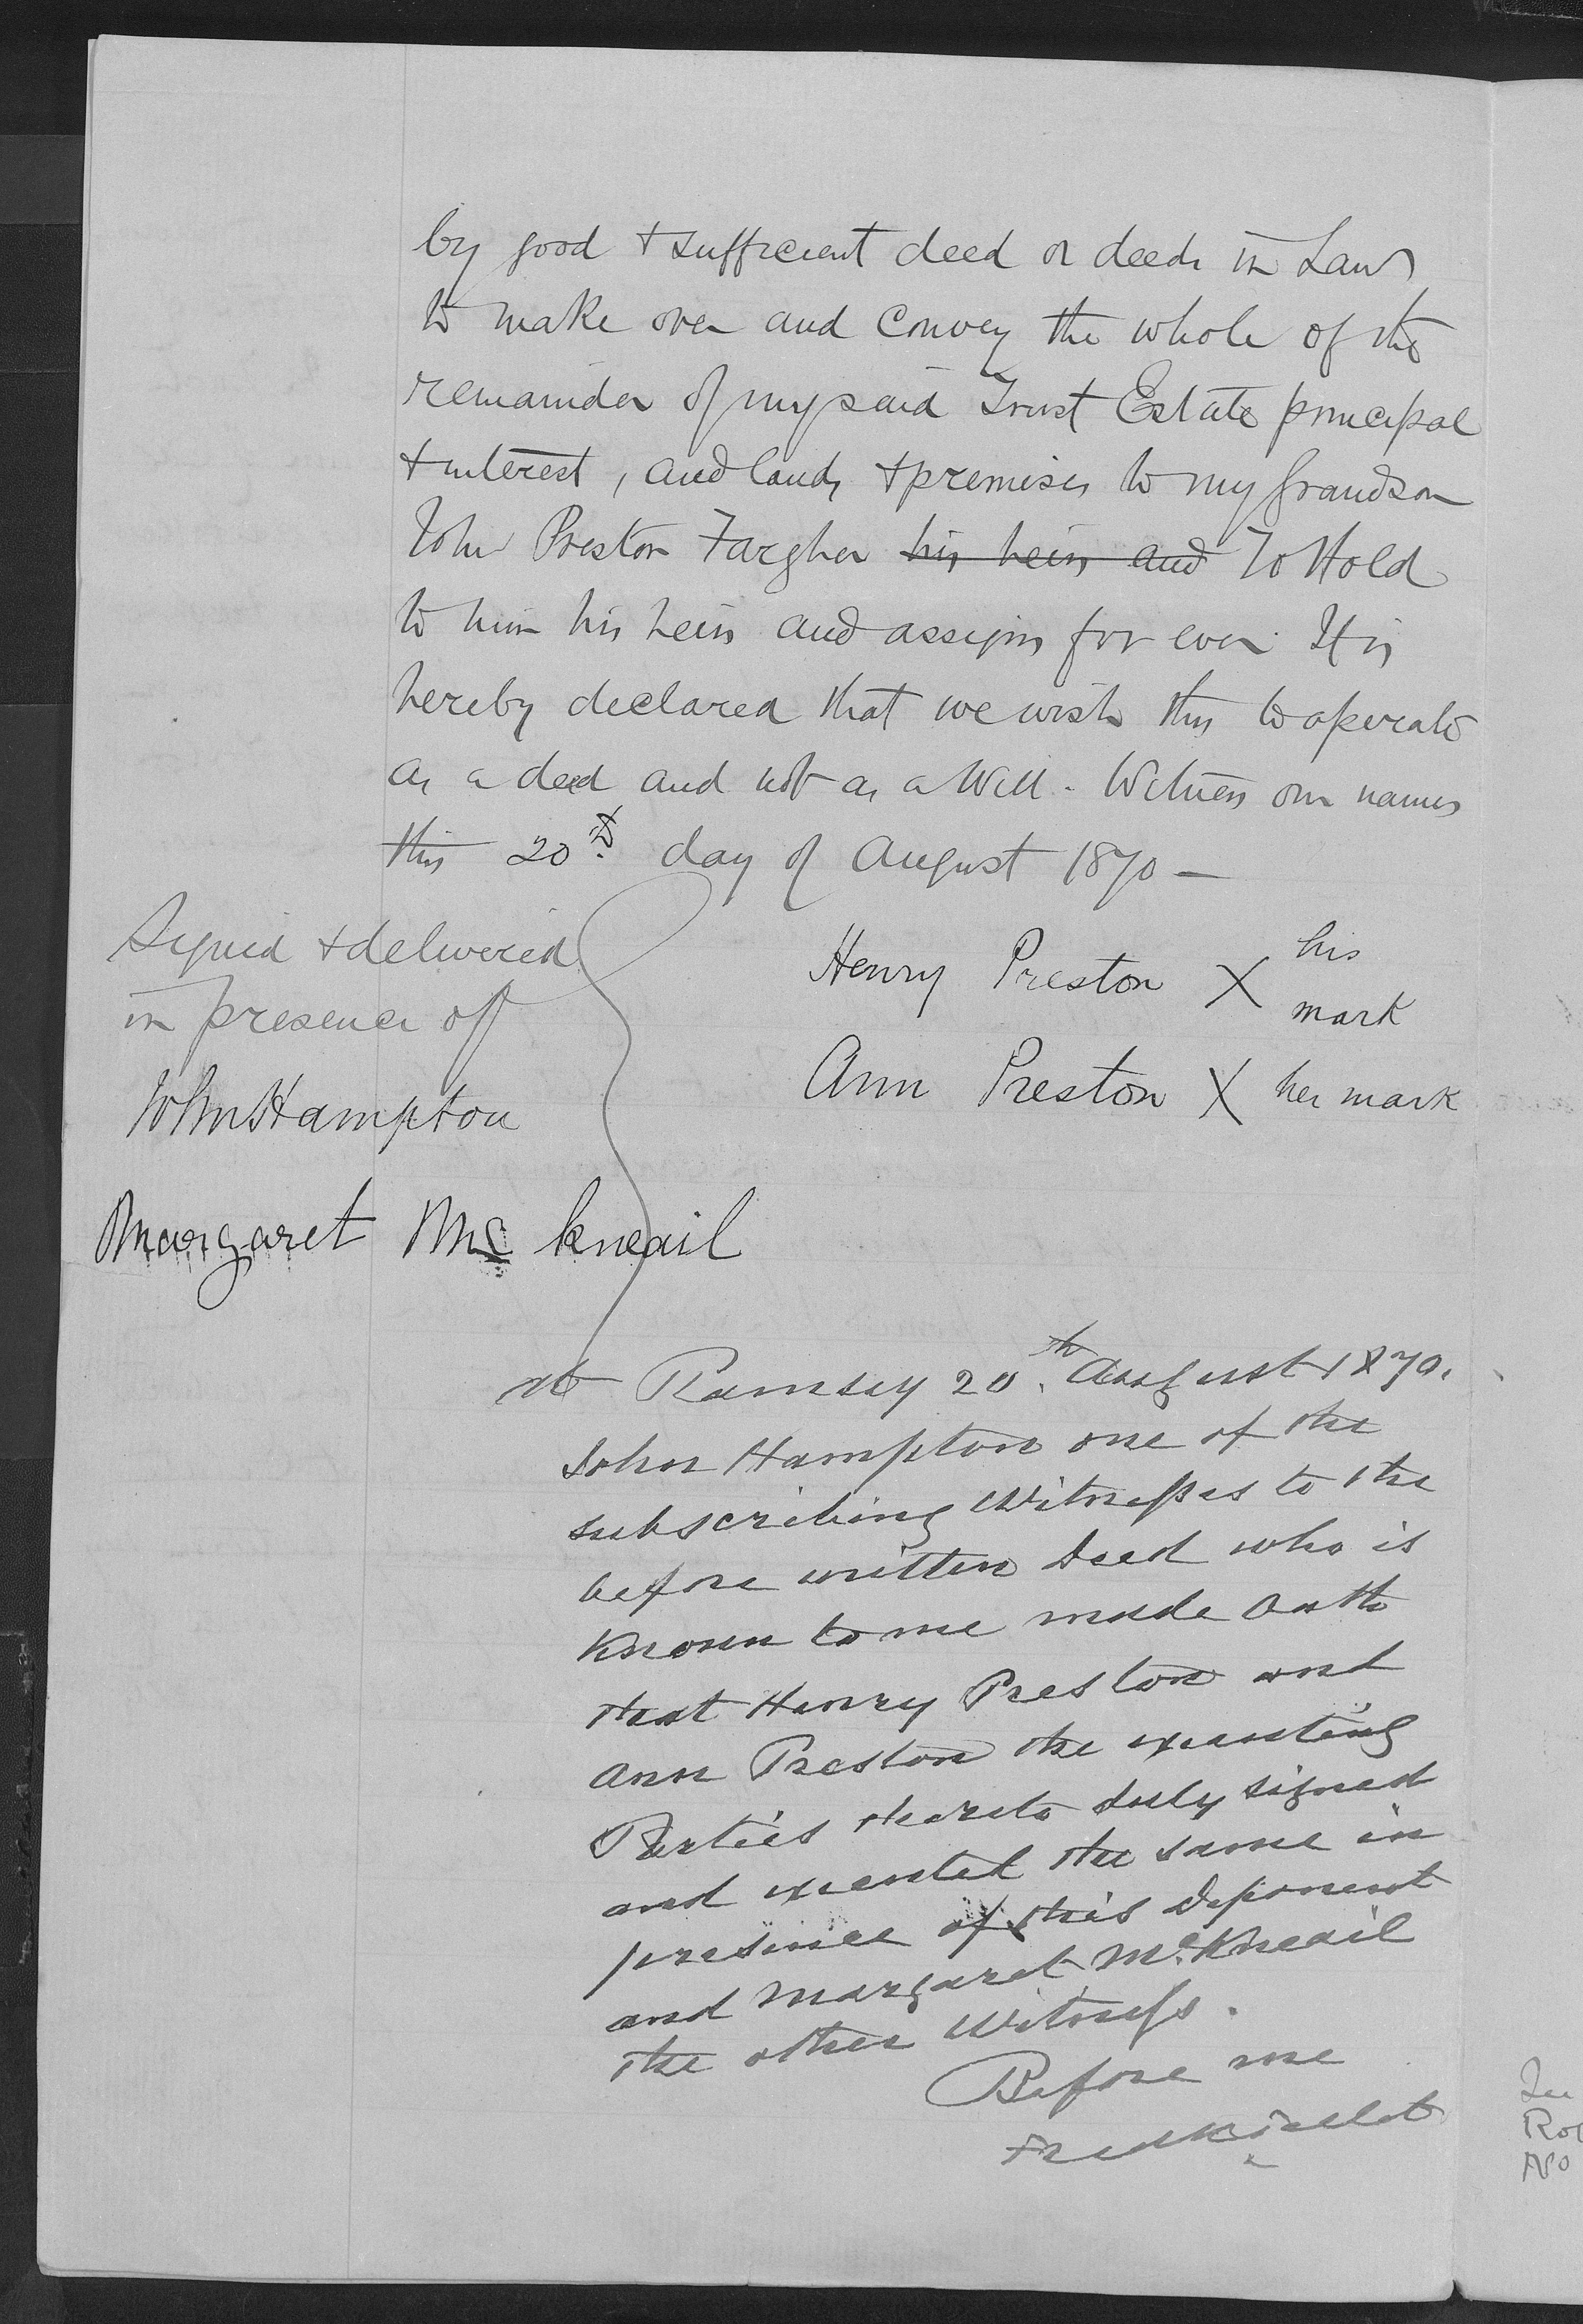 by good + sufficient deed or deeds in Law
to make over and convey the whole of the
remainder of my said Trust Estate principal
+ interest, and lands + premises to my grandson
John Preston Fargher his heirs and To Hold
to him his heirs and assigns for ever. It is
hereby declared that we wish this to operate
as a deed and not as a Will - Witness our names
this 20th day of August 1870 —
Signed + delivered
in presence of
John Hampton
Margaret Mc kneail
Henry Preston X his mark
Ann Preston X her mark
At Ramsey 20th August 1870.
John Hampton one of the
subscribing Witnesses to the
before written Deed who is
known to me made Oath
that Henry Preston and
Ann Preston the executing
Parties thereto duly signed
and executed the same in
presence of this Deponent
and Margaret McKneail
the other Witness.
Before me
Fredk